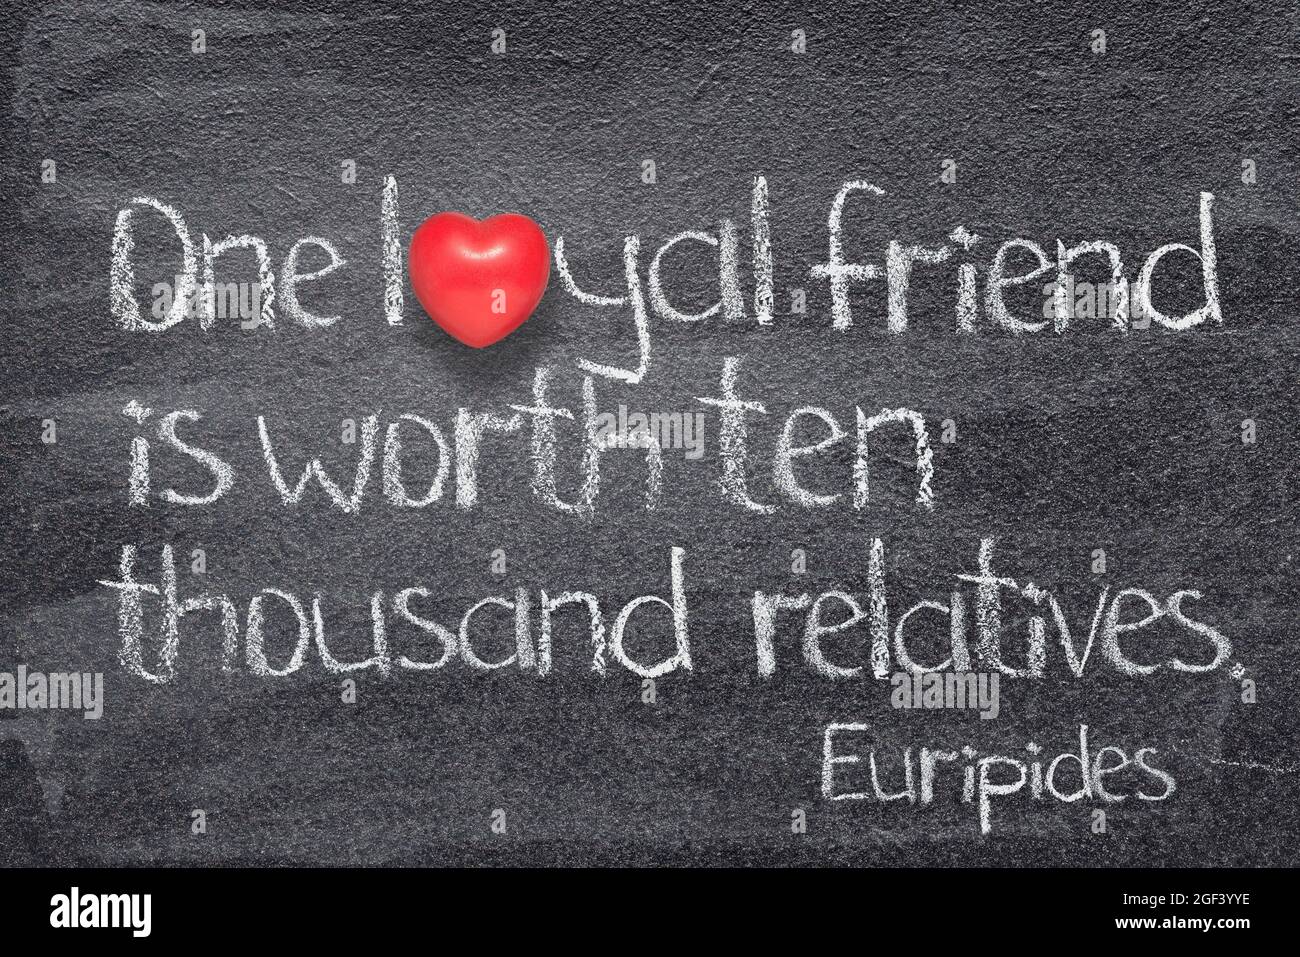 One loyal friend
is worth ten
thousand relatives.
Euripides
alamy
alamy
Image ID: 2GF3YYE
www.alamy.com